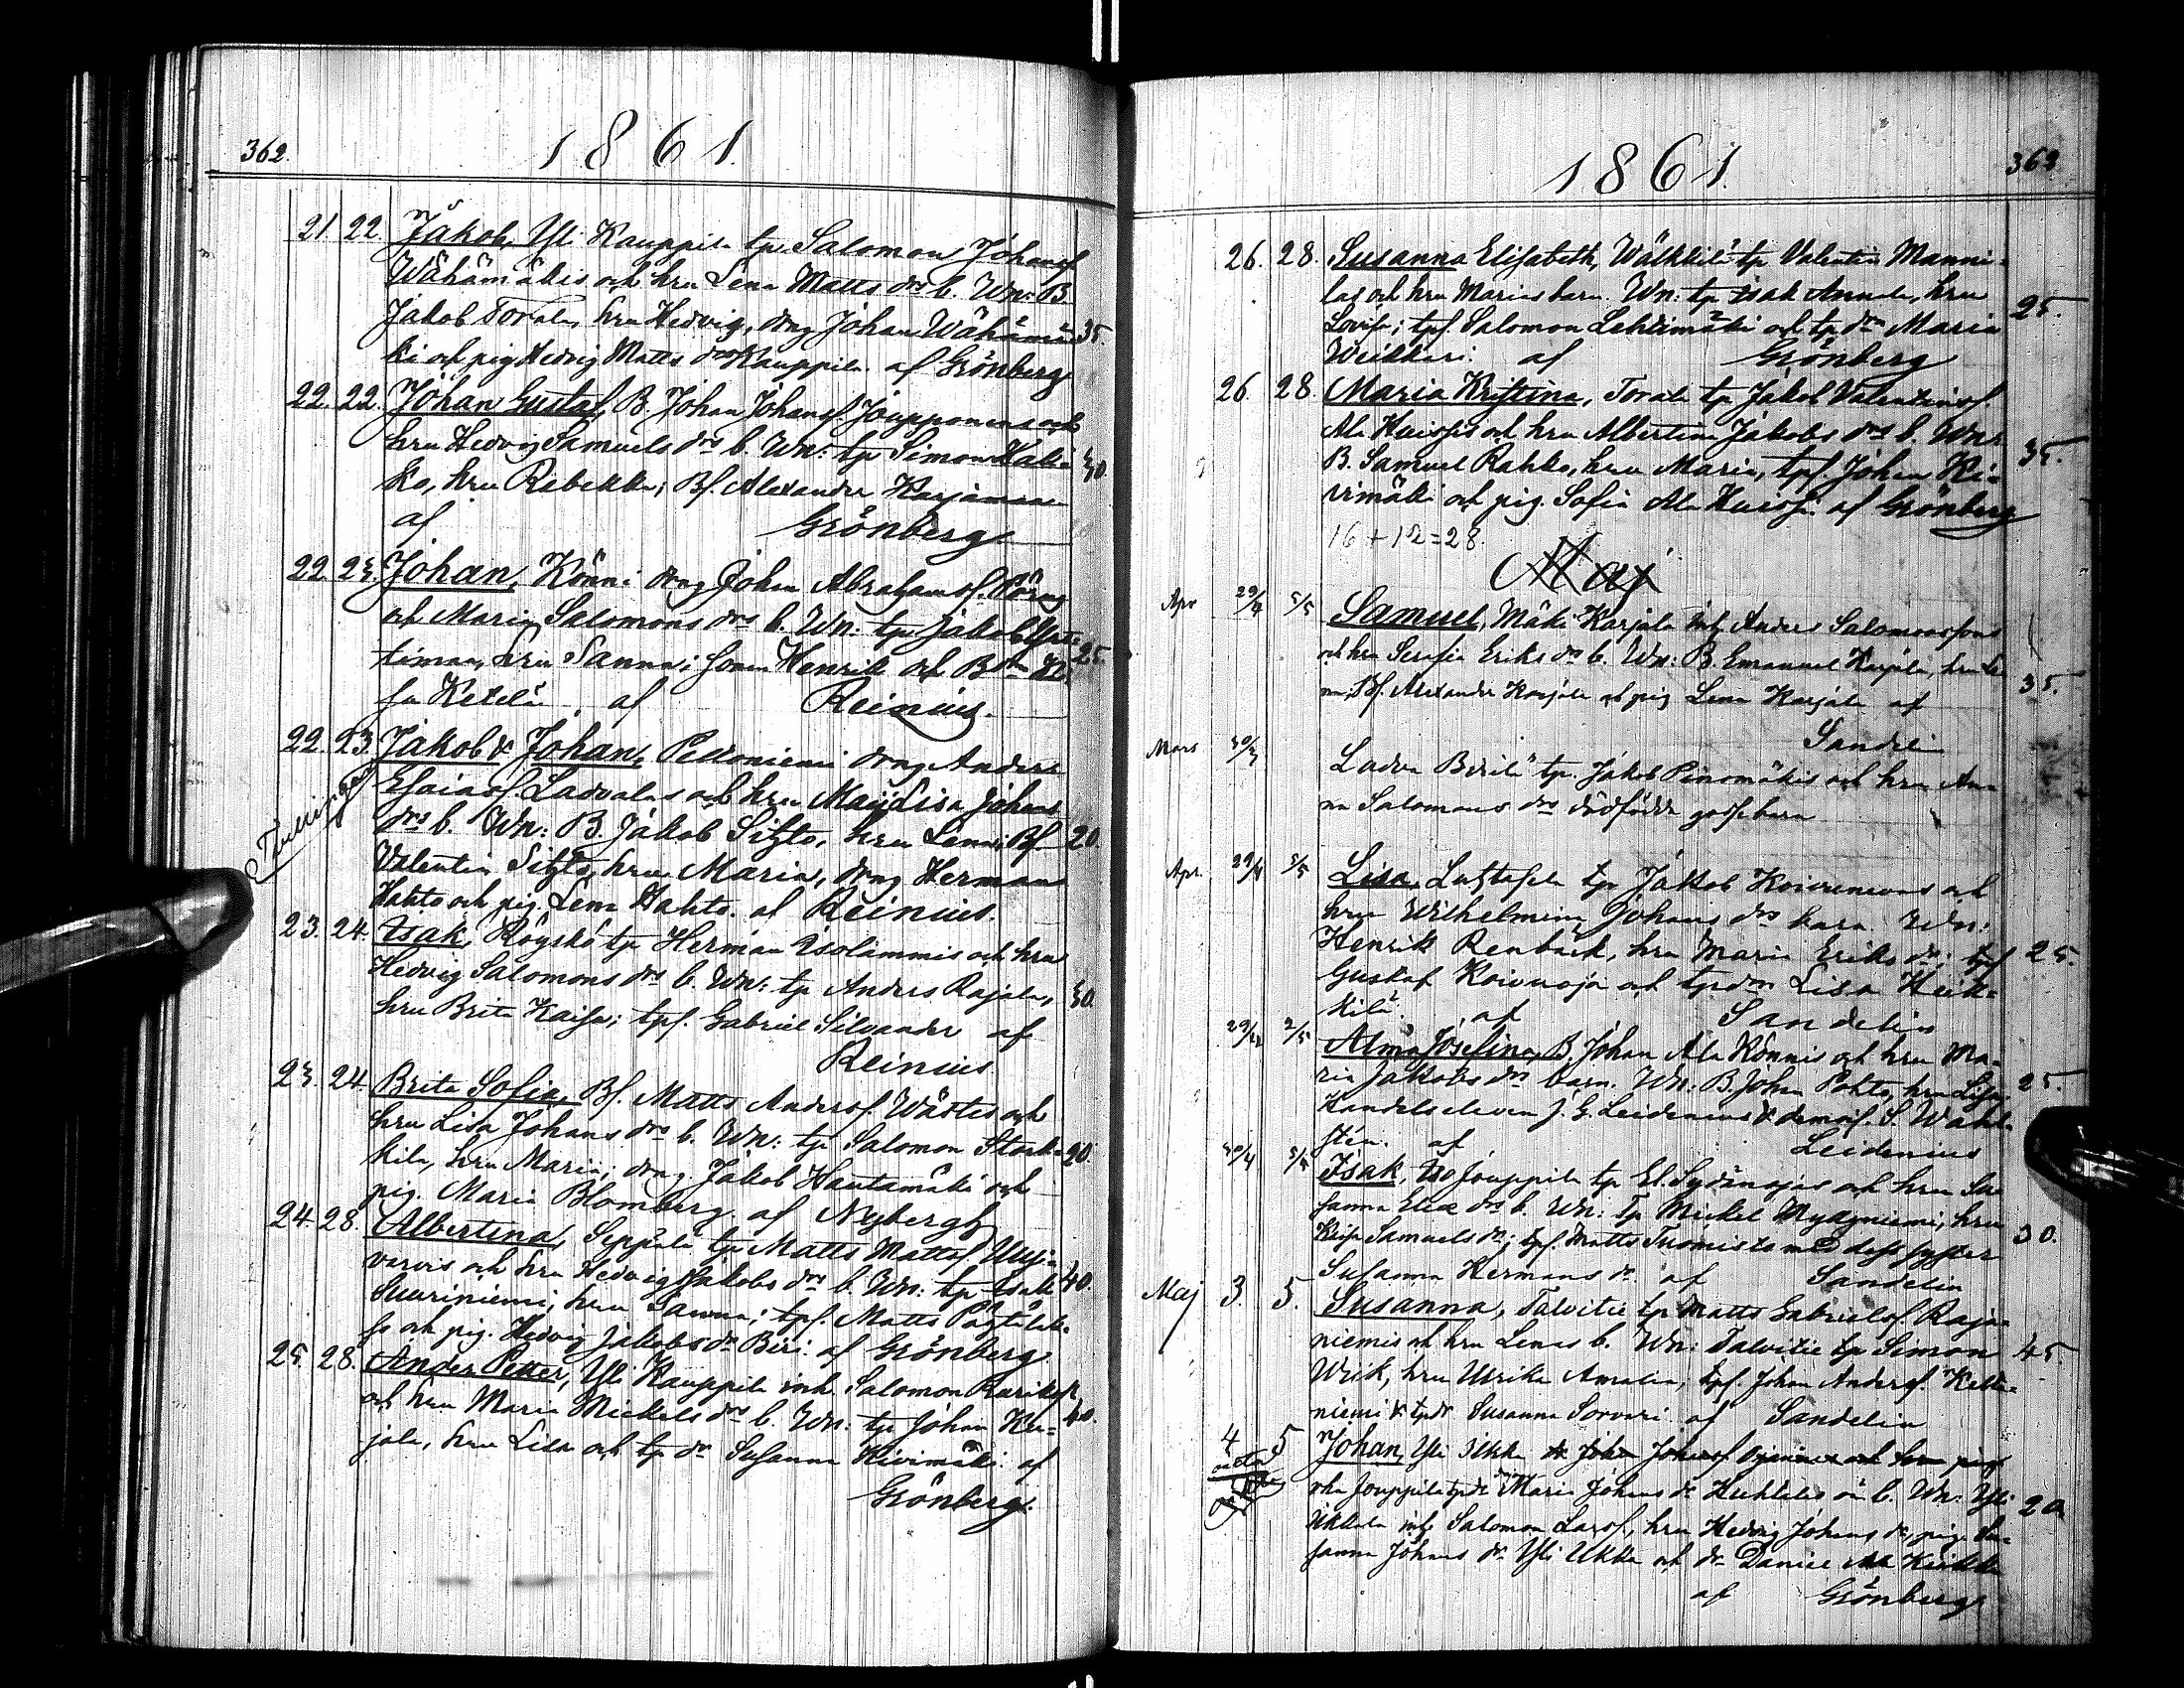 362.
1861.
21. 22. Jakob, Yli Kauppila tp. Salomon Johansf.
Wähämäkis och hru Lena Matts drs b. Wn: B.
Jakob Torala, hru Hedvig, drng Johan Wähämä- 35.
ki och pig Hedvig Matts dr Kauppila. af Grönberg
22. 22. Johan Gustaf, B. Johan Johansf. Joupponens och
hru Hedvig Samuels drs b. Wn: tp Simon Hak- 30.
ko, hru Rebekka; Bf. Alexander Karjanmaa
af Grönberg
22. 23. Johan, Könni drng Johan Abrahamsf.
och Maria Salomons drs b. Wn: tp Jakob 25.
hru Sanna; sonen Henrik och
Ketelä. af Reinius.
22. 23. Jakob & Johan, Pelloniemi drng Anders
Esaiasf. Ladvalas och hru Maij Lisa Johans
drs b. Wn: B. Jakob Sitzto, hru Lena; Bf. 20.
Valentin Sitzto, hru Maria, drng Herman
Hahto och pig. Lena Hahto. af Reinius.
Tvillingar
23. 24. Isak, Röyskö tp Herman Isolammis och hru
Hedvig Salomons drs b. Wn: tp Anders Rajala, 30.
hru Brita Kaisa; tpf. Gabriel Silvander af
Reinius
23. 24. Brita Sofia, Bf. Matts Andersf. Wästes och
hru Lisa Johans drs b. Wn: tp Salomon Stork- 20.
kila, hru Maria; drng Jakob Hautamäki och
pig. Maria Blomberg. af Nybergh
24. 28. Albertina, Seppälä tp Matts Mattsf. Uusi-
varvis och hru Hedvig Jakobs drs b. Wn: tp Isak 40.
Suuriniemi, hru Sanna; tpf. Matts
och pig. Hedvig Jakobs dr Biri. af Grönberg
25. 28. Anders Petter, Yli Kauppila inh. Salomon
och hru Maria Mickels drs b. Wn: tp Johan Kar- 40.
jala, hru Lisa och tp dr Susanna Kivimäki. af
Grönberg.
1861.
363
26. 28. Susanna Elisabeth, Wälkkilä tp Valentin Manni-
las och hru Marias barn. Wn: tp Isak Annala, hru 25.
Lovisa; tpf. Salomon Lehtimäki och tp dr Maria
Weikkari. af Grönberg
26. 28. Maria Kristina, Torala tp Jakob Valentinsf.
Ala Huissis och hru Albertina Jakobs drs b. Wn: 35.
B. Samuel Rahko, hru Maria, tpf. Johan Ki-
vimäki och pig. Sofia Ala Huissi. af Grönberg
16+12=28.
Maj
Apr 29/4 5/5 Samuel, Mäki Karjala inh. Anders Salomonssons
och hru Serafia Eriks drs b. Wn: B. Emanuel Karjala, hru Le-
na; Bf. Alexander Karjala och pig Lena Karjala af 35.
Sandelin
Mars 30/3 Ladva Berilä tp. Jakob Pinomäkis och hru An-
na Salomons drs dödfödda gossebarn
Apr. 29/4 5/5 Lisa, tp Jakob Koivuniemis och
hru Wilhelmina Johans drs barn. Wn:
Henrik Renback, hru Maria Eriks dr; tpf 25.
Gustaf Koivuoja och tp dr Lisa Heik-
kilä. af Sandelin
29/4 2/5 Alma Josefina, B. Johan Ala Könnis och hru Ma-
ria Jakobs drs barn. Wn: B. Johan Pohto, hru Lisa, 25.
Handelseleven J. G. Leidenius & demois. S. Wahl-
stén. af Leidenius
30/4 5/5 Isak, Iso Jouppila tp El. Sydänojas och hru Su-
sanna Elias drs b. Wn: Tp Mickel Myllyniemi, hru
Kaisa Samuels dr; tpf. Matts Tuomisto med dess syster 30.
Susanna Hermans dr af Sandelin
Maj 3. 5. Susanna, Talvitie tp Matts Gabrielsf. Raja-
niemis och hru Lenas b. Wn: Talvitie tp Simon 45.
Wiik, hru Ulrika Amalia, tpf. Johan Andersf. Keltaniemi
& tpdr Susanna Sorvari. af Sandelin
4 5 Johan, Yli Ikka
Jouppila tpdr Maria Johans dr oä b. Wn: Yli
inh. Salomon Larsf., hru Hedvig Johans dr, pig. Su- 20
sanna Johans dr Yli Ukko och dr Daniel
af Grönberg